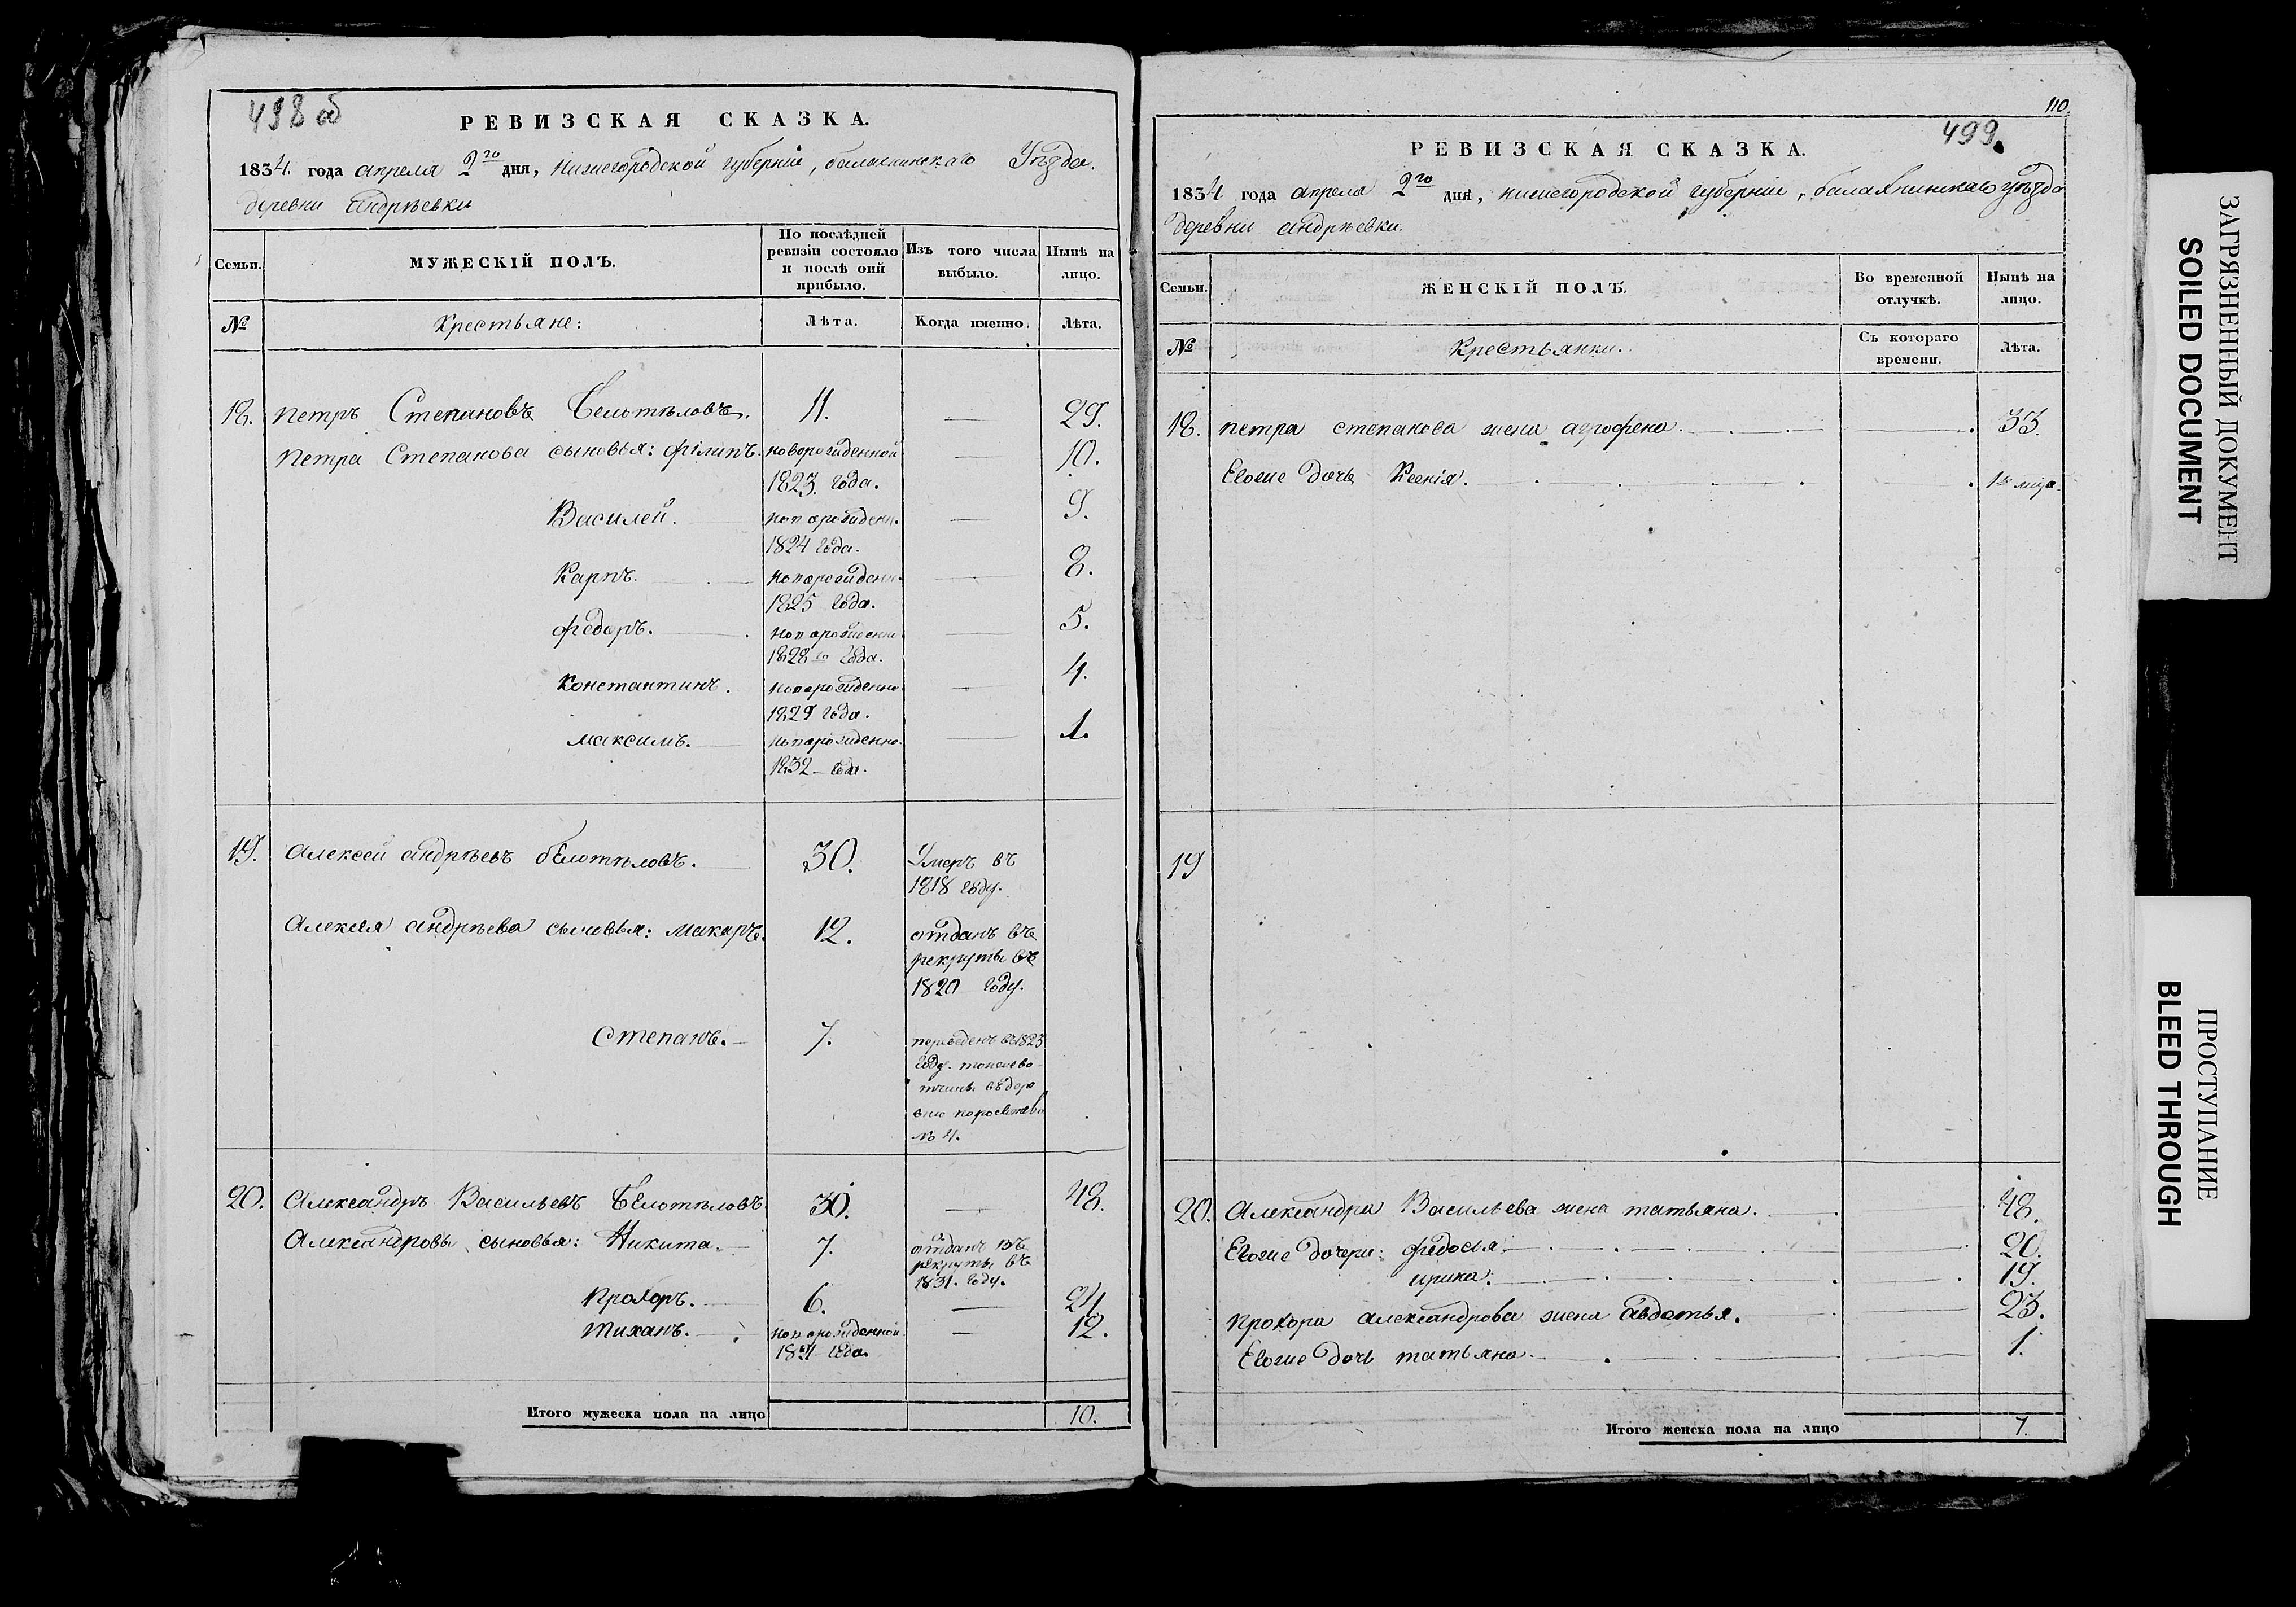 498 об
РЕВИЗСКАЯ СКАЗКА.
1834. года апреля 2го дня, нижегородской губерніи, балахнинскаго Уѣзда.
деревни андрѣевки
Семьи.
МУЖЕСКІЙ ПОЛЪ.
По послѣдней ревизіи состояло и послѣ оній прибыло.
Изъ того числа выбыло.
Нынѣ на лицо.
№
Крестьяне:
Лѣта.
Когда именно.
Лѣта.
18. петръ Степановъ Белотѣловъ. 11. — 29.
Петра Степанова сыновья: філипъ. новорожденной — 10.
1823. года.
Василей. новорожденн. — 9.
1824 года.
Карпъ. новорожден. — 8.
1825 года.
федоръ. новорожденн — 5.
1828го года.
Константинъ. новорожденно — 4.
1829 года.
максимъ. новорожденно. — 1.
1832 года.
19. Алексей андрѣевъ бѣлотѣловъ. 30. Умеръ въ
1818 году.
Алексея андрѣева сыновья: макаръ. 12. отданъ въ
рекруты въ
1820 году.
Степанъ. 7. переведенъ въ 1823
году. тойже во
тчины въ дере
вню
№ 4.
20. Александръ Васильевъ Белотѣловъ. 30. — 48.
Александровы сыновья: Никита. 7. отданъ въ
рекруты въ
1831. году.
Прохоръ. 6. — 24.
тиханъ. новорожденной — 12.
года.
Итого мужеска пола на лицо 10.
110
499.
РЕВИЗСКАЯ СКАЗКА.
1834 года апреля 2го дня, нижегородской губерніи, балахнинскаго уѣзда
деревни андрѣевки.
Семьи.
ЖЕНСКІЙ ПОЛЪ.
Во временной отлучкѣ.
Нынѣ на лицо.
№
Крестьянки.
Съ котораго времени.
Лѣта.
18. петра степанова жена агрофена. 33.
Евоже дочь Ксенія. мѣца.
19
20. Александра Васильева жена татьяна. 48.
Евоже дочери: федосья. 20.
ирина. 19.
прохора александрова жена авдотья. 23.
Евоже дочь татьяна. 1.
Итого женска пола на лицо 7.
ЗАГРЯЗНЕННЫЙ ДОКУМЕНТ
SOILED DOCUMENT
ПРОСТУПАНИЕ
BLEED THROUGH